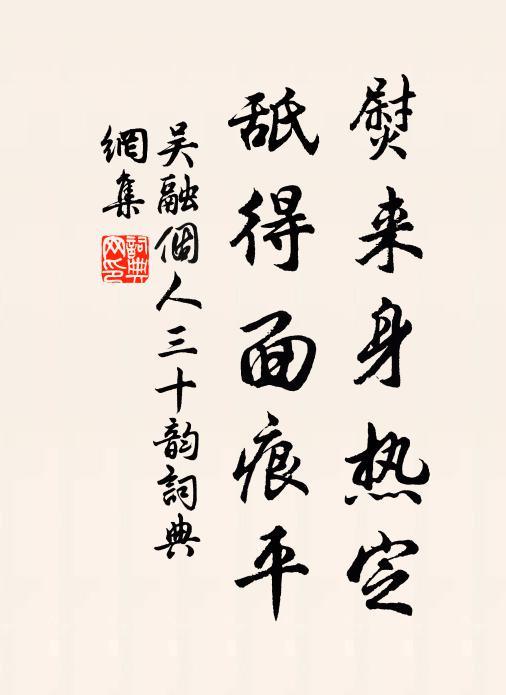 熨来身热定
舐得面痕平
吴融個人三十韵詞典
網集
詞典
网印